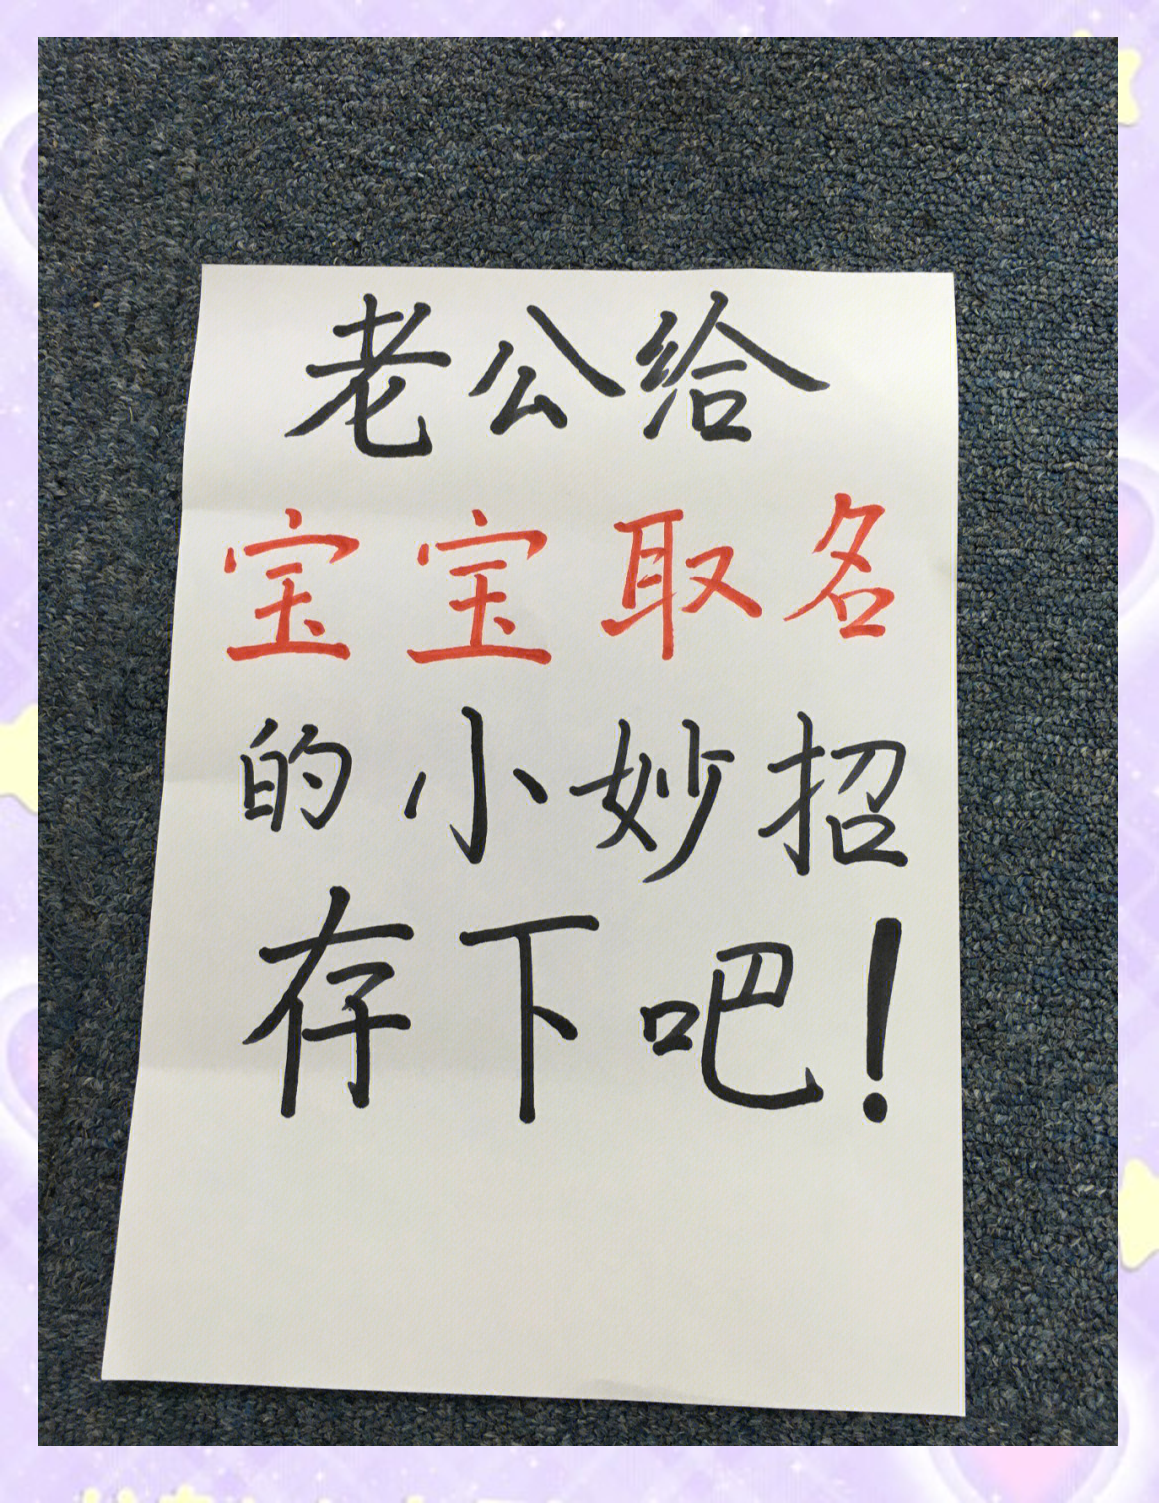 老公给
宝宝取名
的小妙招
存下吧！